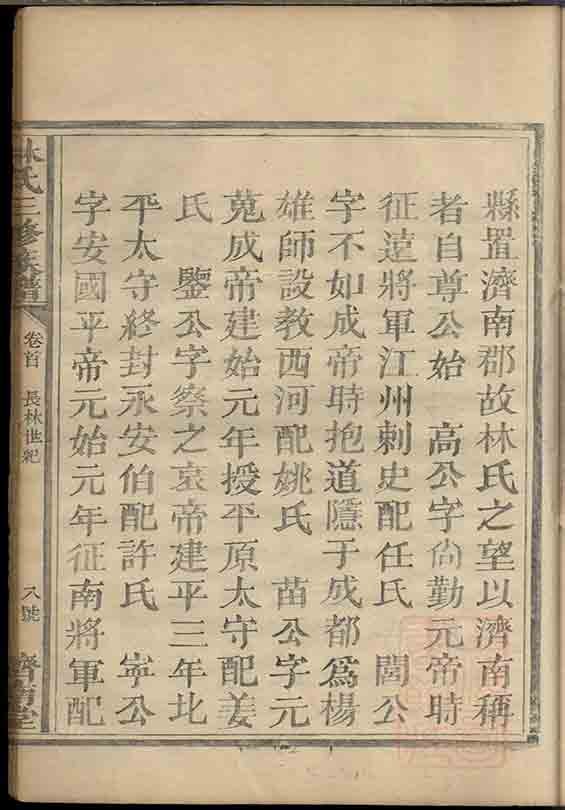 縣置濟南郡故林氏之望以濟南稱
者自尊公始　高公字尙勤元帝時
征遠將軍江州刺史配任氏　閭公
字不如成帝時抱道隱于成都爲楊
雄師設教西河配姚氏　苗公字元
蒐成帝建始元年授平原太守配姜
氏　鑒公字察之哀帝建平三年北
平太守終封永安伯配許氏　寧公
字安國平帝元始元年征南將軍配
林氏三修族譜
卷首　長林世紀
八號
濟南堂